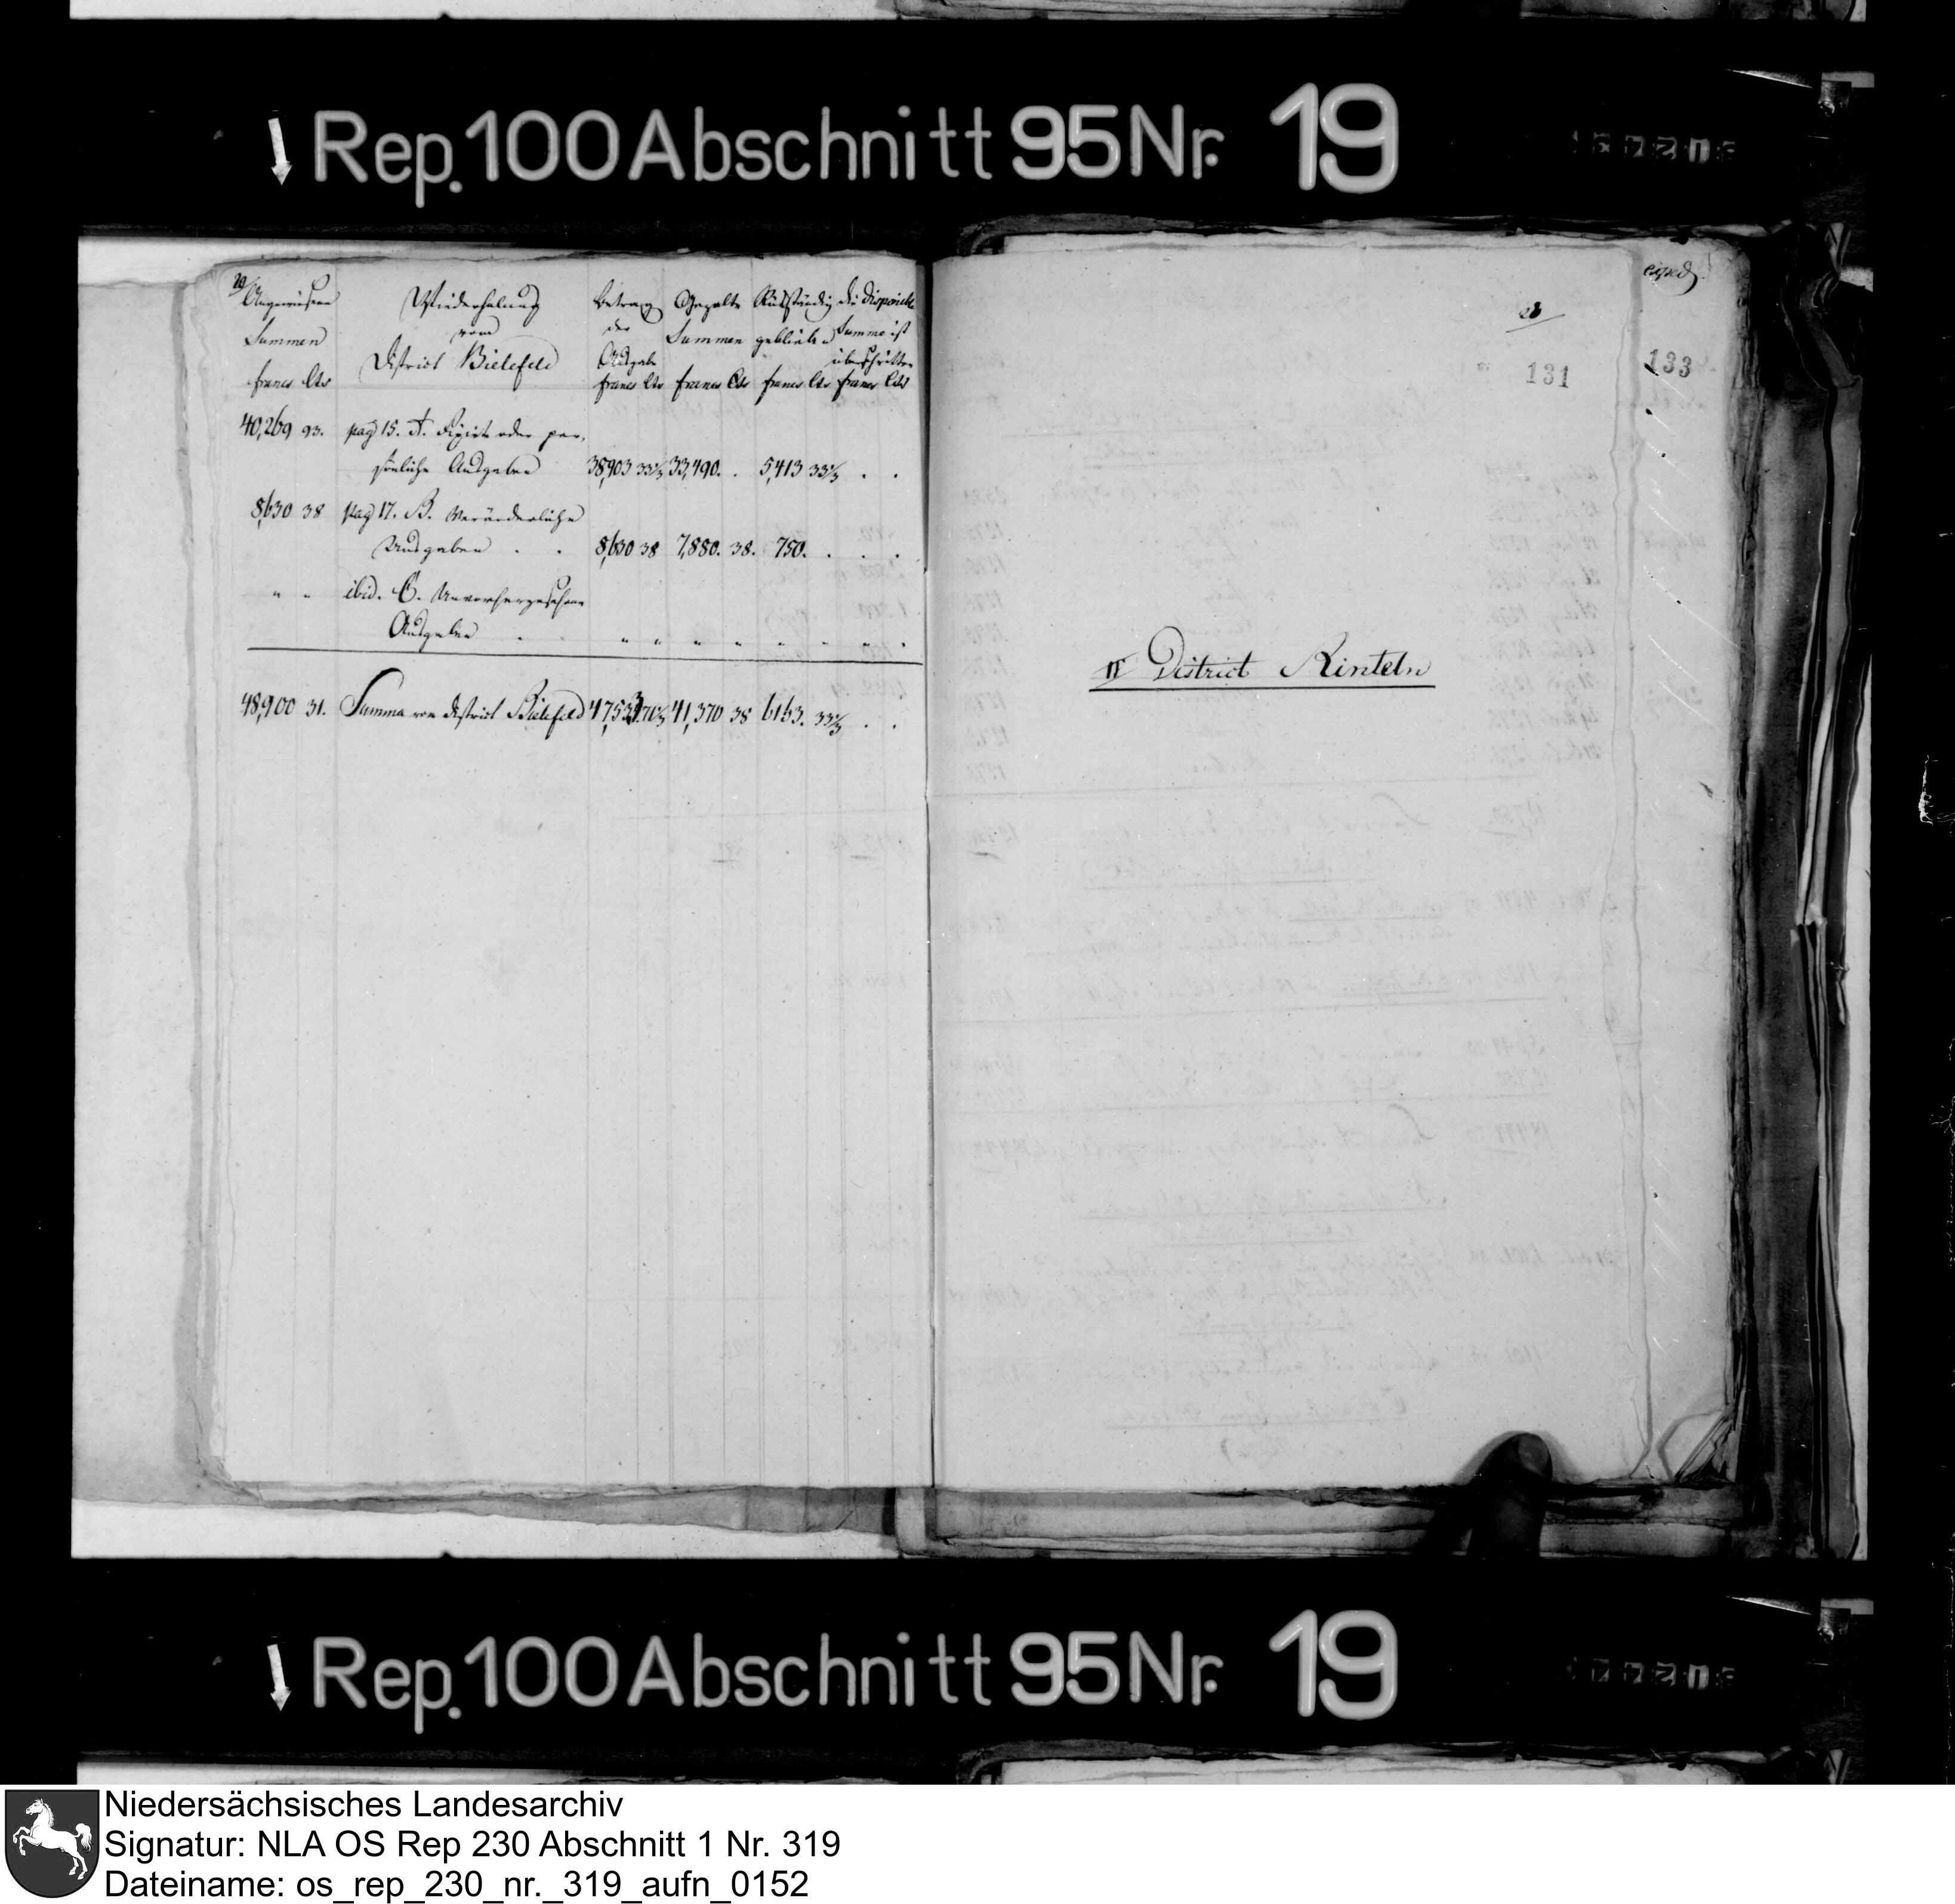 Rep. 100 Abschnitt 95 Nr. 19
20
Angewiesene Summen francs Cts
Wiederholung vom District Bielefeld
Betrag der Ausgabe francs Cts
Gezalte Summen francs Cts
Rückständig geblieben francs Cts
die disponible Summe ist überschritten francs Cts
40,269 93. pag 15. A. Fixirte oder per-
sönliche Ausgaben 38,903 33⅓ 33,490. . 5,413 33⅓ . .
8,630 38 pag 17. B. Veränderliche
Ausgaben . . 8,630 38 7,880. 38. 750. . . .
" " ibid. C. Unvorhergesehene
Ausgaben . . " " " " " " " "
48,900 31. Summa vom District Bielefeld 47,533 70⅓ 41,370 38 6163. 33⅓ . .
131
133
IV District Rinteln
Rep. 100 Abschnitt 95 Nr. 19
Niedersächsisches Landesarchiv
Signatur: NLA OS Rep 230 Abschnitt 1 Nr. 319
Dateiname: os_rep_230_nr._319_aufn_0152